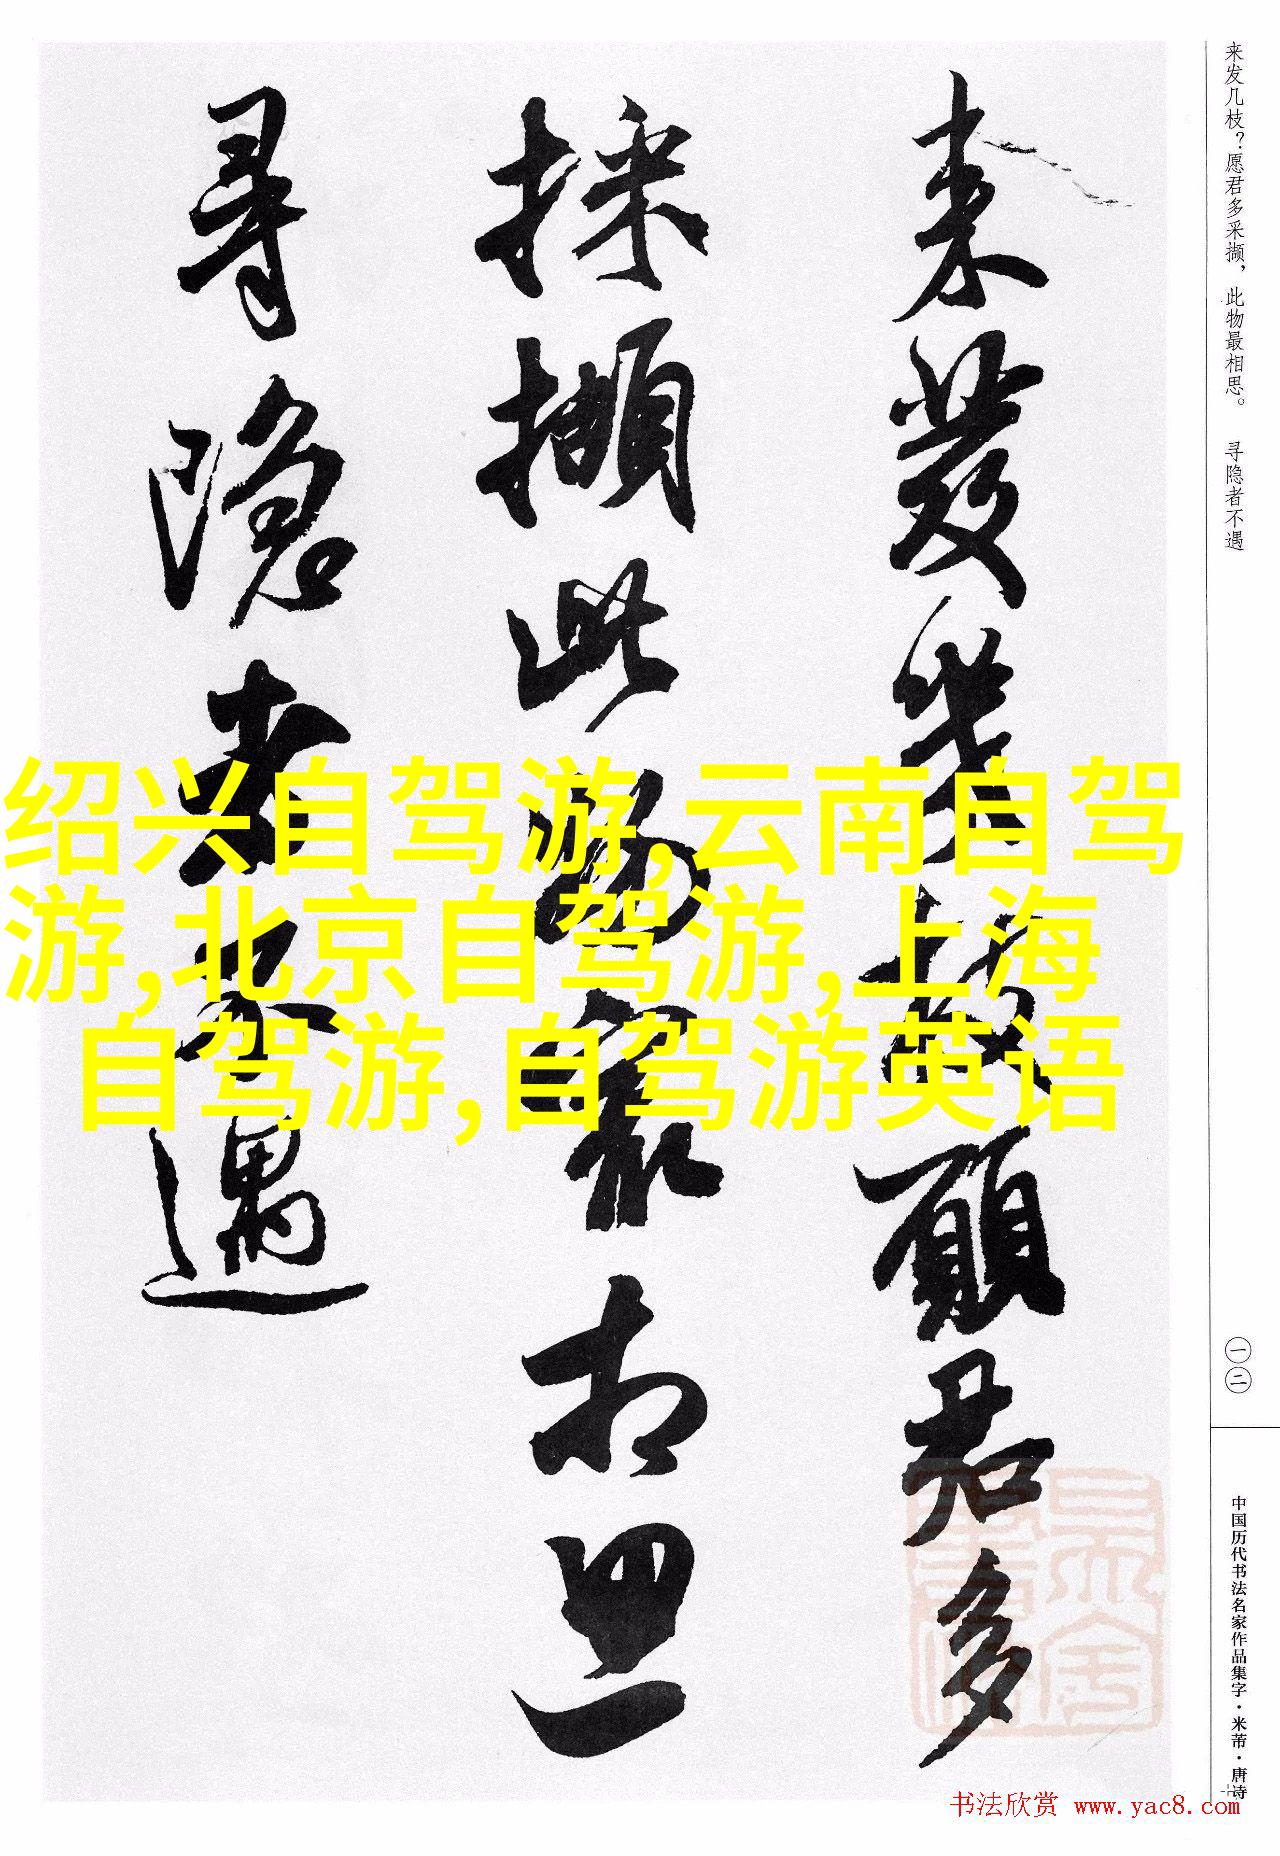 来发几枝？愿君多采撷，此物最相思。 寻隐者不遇
來發幾枝願君多
採擷此物最相思
尋隱者不遇
绍兴自驾游,云南自驾
游,北京自驾游,上海
自驾游,自驾游英语
一二
中国历代书法名家作品集字·米芾·唐诗
书法欣赏 www.yac8.com